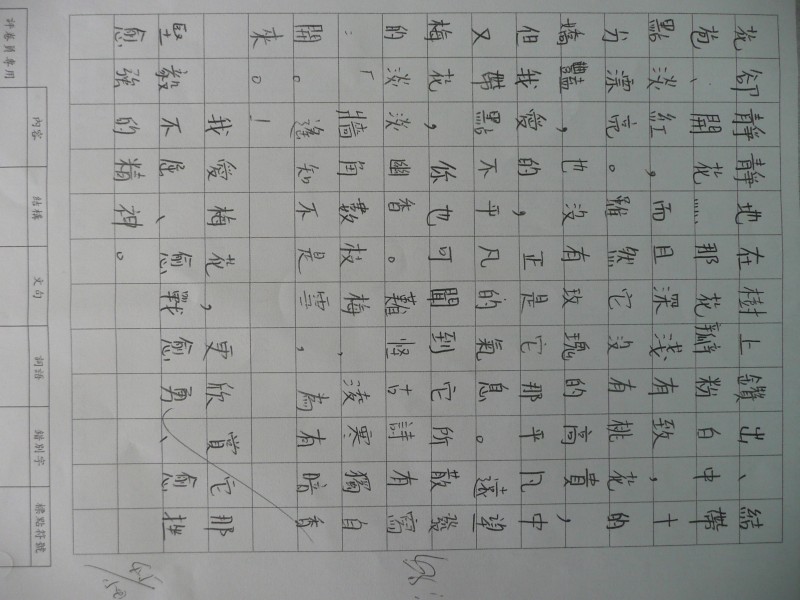 花卻靜靜地在樹上鑽出、結
苞、開花……那花瓣粉白中帶
點淡紅,而且深淺有致,十
分漂亮。雖然它沒有桃花的
嬌豔,也沒有玫瑰的高貴,
但我愛的,正是它那平凡中
又帶點不平凡的氣息。遠望
梅花,你也可聞到它所散發
的淡淡幽香。難怪古詩有寫
:「牆角數枝梅,凌寒獨自
開。遙知不是雪,為有暗香
來。」
我愛梅花,更欣賞它那
堅毅不屈、愈戰愈勇、愈挫
愈強的精神。
評卷員專用
內容
結構
文句
詞語
錯別字
標點符號